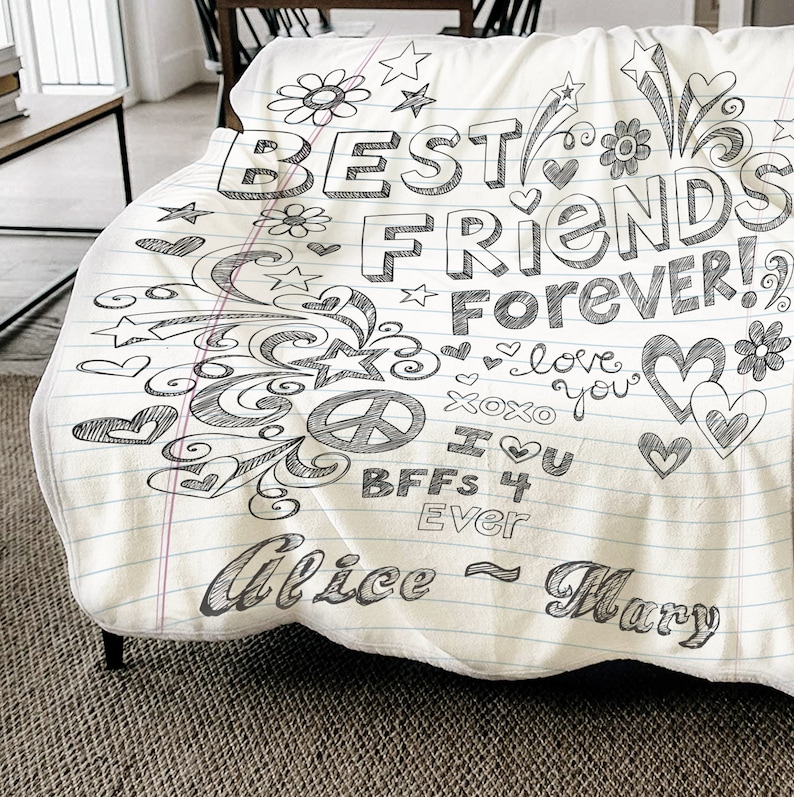 BEST
FRiENDS
FOReVER!
love
you
xoxo
I ♡ U
BFFs 4
Ever
Alice ~ Mary